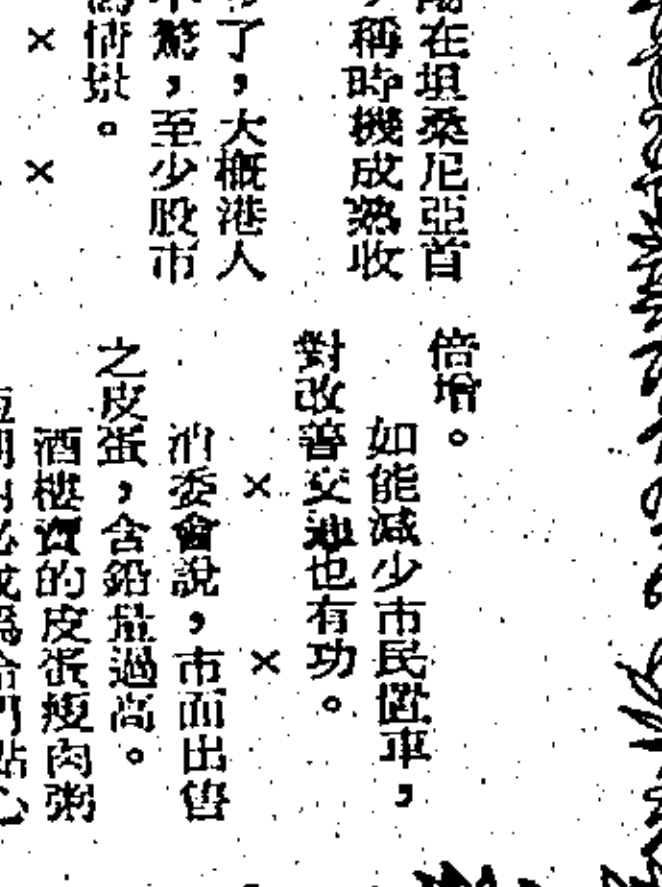 在坦桑尼亞首
稱時機成熟收
了，大概港人
驚，至少股市
情景。
×　×
倍增。
如能減少市民置車，
對改善交通也有功。
×　×
消委會說，市面出售
之皮蛋，含鉛量過高。
酒樓賣的皮蛋瘦肉粥